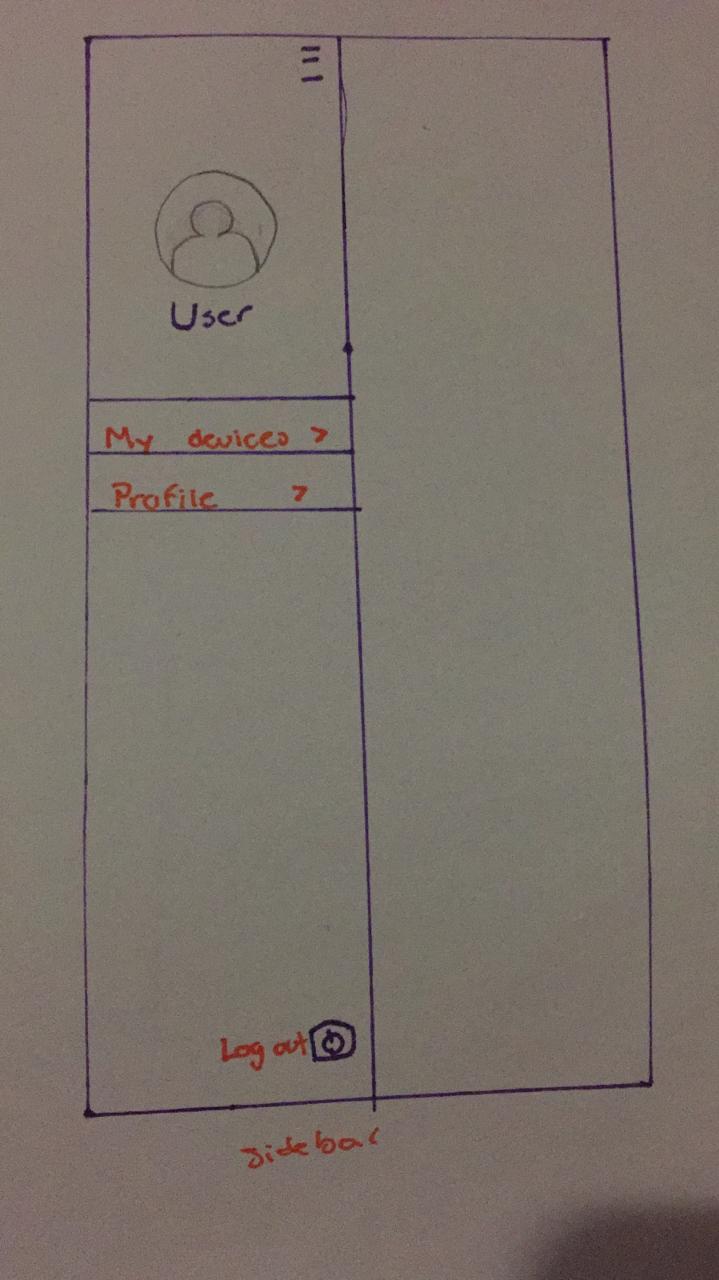 User
My devices >
Profile >
Log out
sidebar